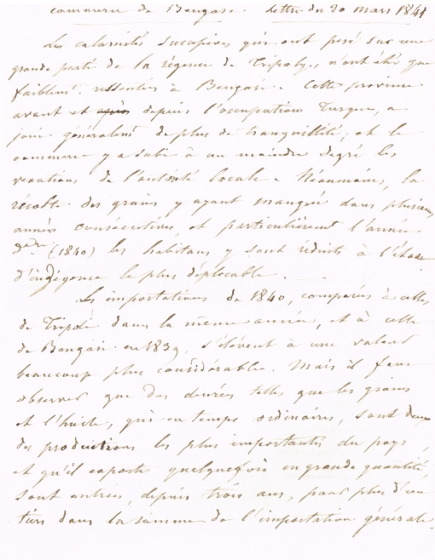 commerce de Bengasi. Lettre du 20 mars 1841
Les calamités successives qui ont pesé sur une
grande partie de la régence de Tripoly, n'ont été que
faiblemt ressenties à Bengasi. Cette province
avant et après depuis l'occupation Turque, a
joui généralemt de plus de tranquillité, et le
commerce y a subi à un moindre degré les
vexations de l'autorité locale. Néanmoins, la
récolte des grains y ayant manqué dans plusieurs
années consécutives, et particulièremt l'année
dre (1840) les habitans y sont réduits à l'état
d'indigence le plus déplorable.
Les importations de 1840, comparées à celles
de Tripoli dans la même année, et à celle
de Bengasi en 1839, s'élèvent à une valeur
beaucoup plus considérable. Mais il faut
observer que des denrées telles que les grains
et l'huile, qui en temps ordinaires, sont
des productions les plus importantes du pays
et qu'il exporte quelquefois en grande quantité,
sont entrées, depuis trois ans, pour plus d'un
tiers dans la somme de l'importation générale.